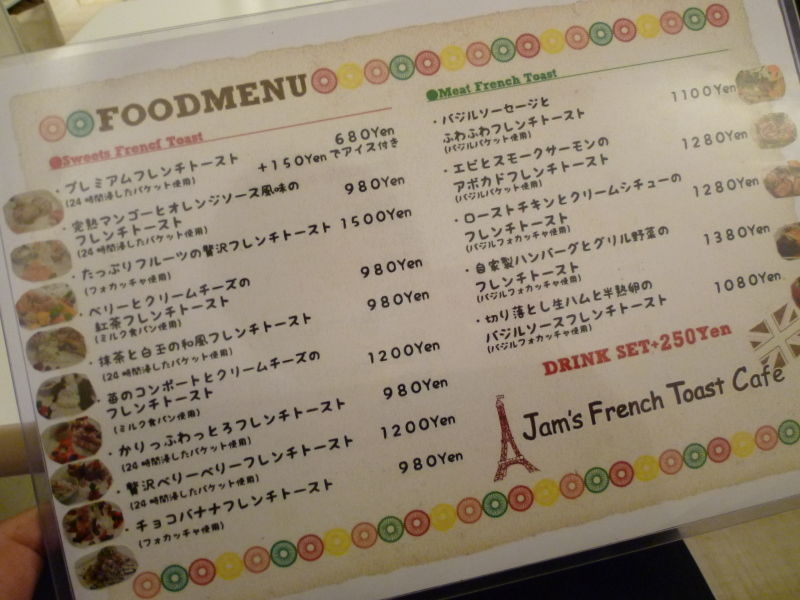 FOODMENU
●Sweets Frencf Toast
・プレミアムフレンチトースト 680Yen
(24時間浸したバケット使用) +150Yenでアイス付き
・完熟マンゴーとオレンジソース風味の
フレンチトースト 980Yen
(24時間浸したバケット使用)
・たっぷりフルーツの贅沢フレンチトースト 1500Yen
(フォカッチャ使用)
・ベリーとクリームチーズの
紅茶フレンチトースト 980Yen
(ミルク食パン使用)
・抹茶と白玉の和風フレンチトースト 980Yen
(24時間浸したバケット使用)
・苺のコンポートとクリームチーズの
フレンチトースト 1200Yen
(ミルク食パン使用)
・かりっふわっとろフレンチトースト 980Yen
(24時間浸したバケット使用)
・贅沢ベリーベリーフレンチトースト 1200Yen
(24時間浸したバケット使用)
・チョコバナナフレンチトースト 980Yen
(フォカッチャ使用)
●Meat French Toast
・バジルソーセージと
ふわふわフレンチトースト 1100Yen
(バジルバケット使用)
・エビとスモークサーモンの
アボカドフレンチトースト 1280Yen
(バジルバケット使用)
・ローストチキンとクリームシチューの
フレンチトースト 1280Yen
(バジルフォカッチャ使用)
・自家製ハンバーグとグリル野菜の
フレンチトースト 1380Yen
(バジルフォカッチャ使用)
・切り落とし生ハムと半熟卵の
バジルソースフレンチトースト 1080Yen
(バジルフォカッチャ使用)
DRINK SET+250Yen
Jam's French Toast Cafe